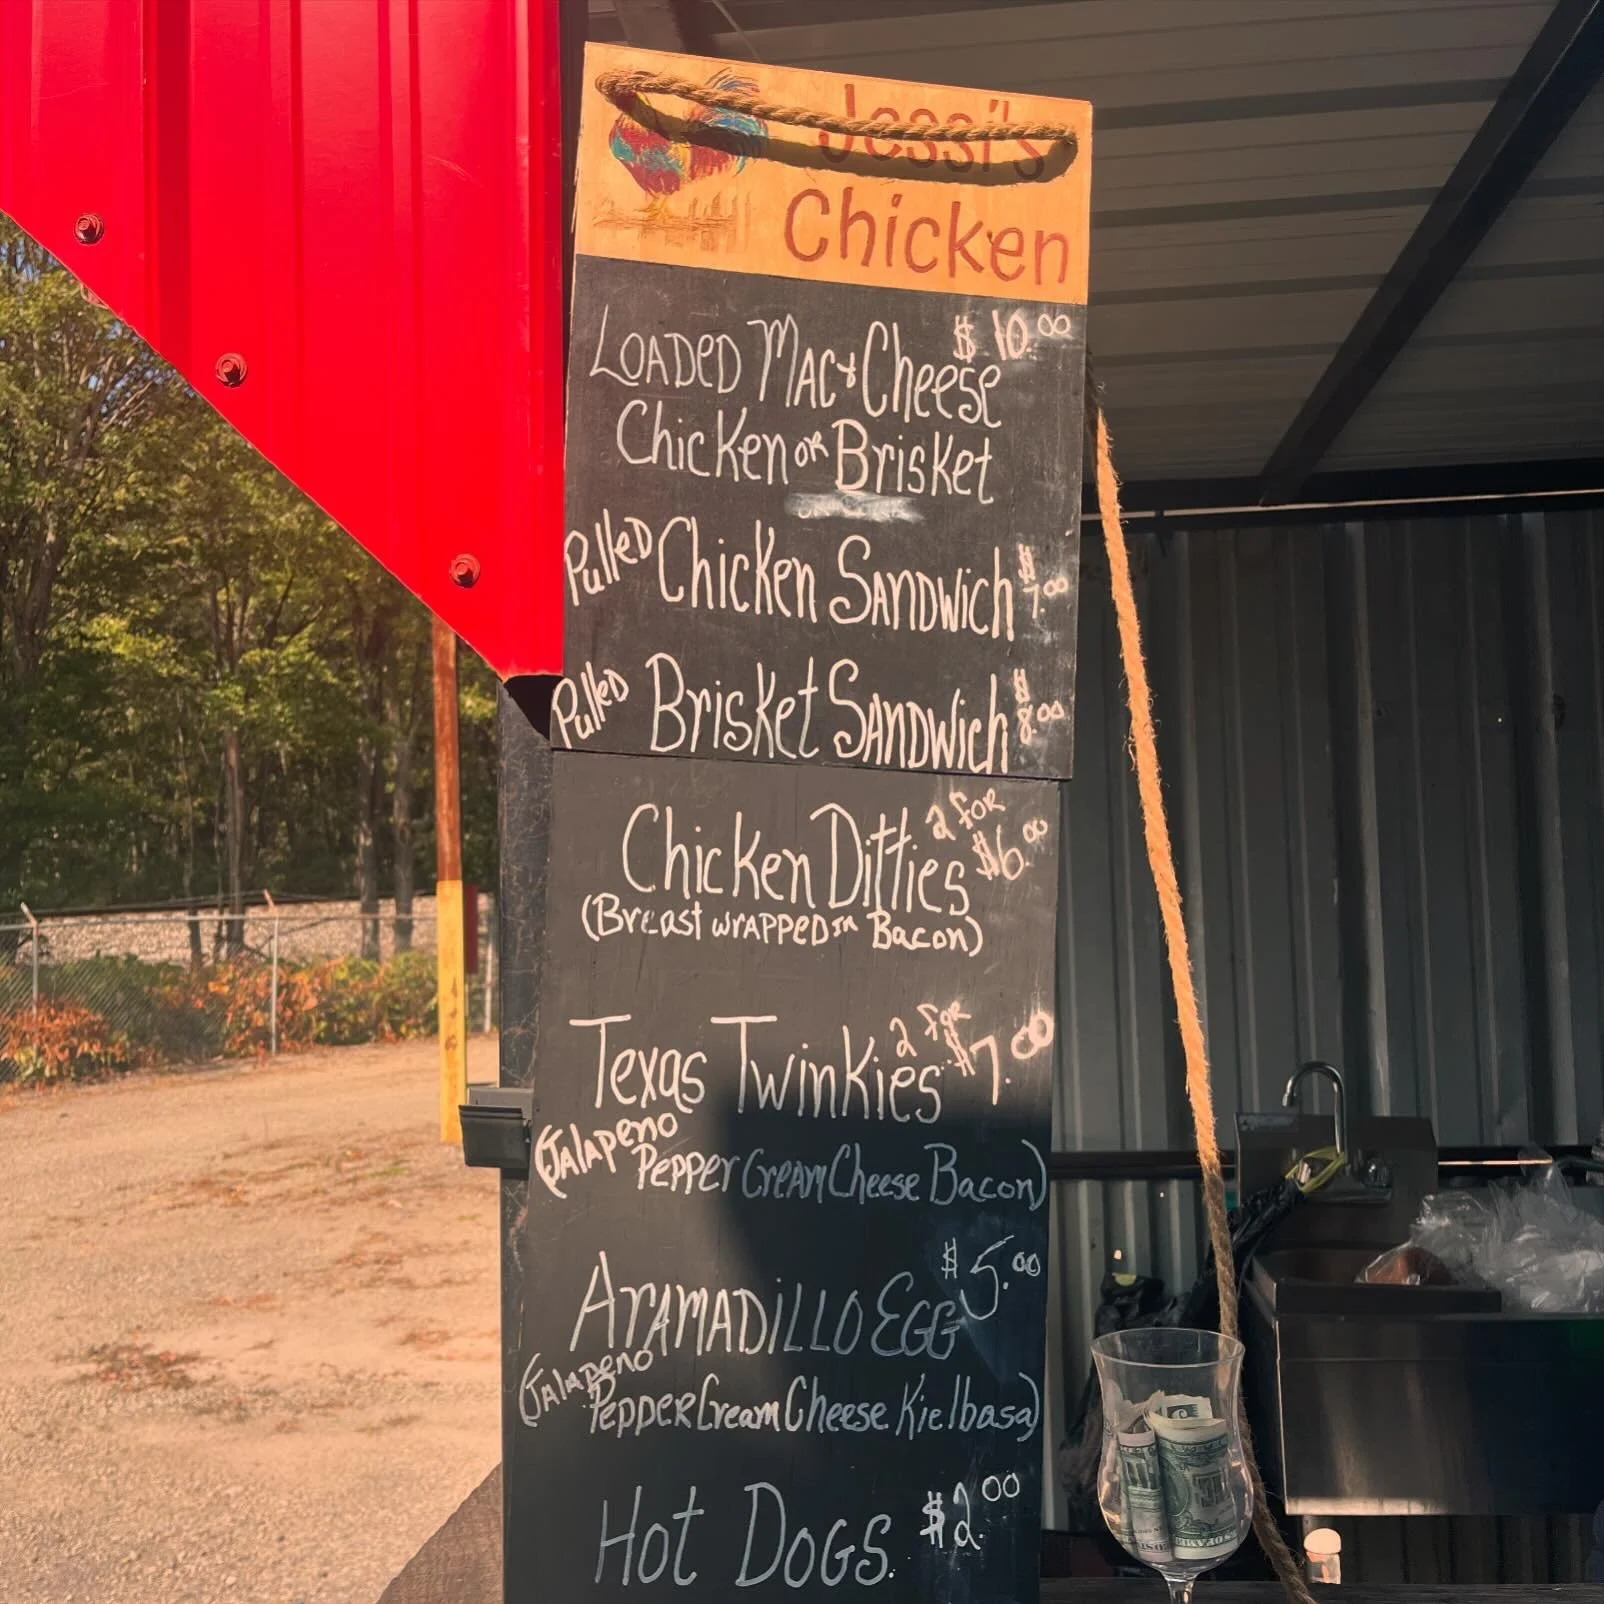 Jessi's
Chicken
LOADED MAC & Cheese $10.00
Chicken or Brisket
Pulled Chicken SANDWich $7.00
Pulled Brisket SANDWich $8.00
Chicken Ditties 2 for $6.00
(Breast WRAPPED IN Bacon)
Texas Twinkies 2 for $7.00
(Jalapeno Pepper Cream Cheese Bacon)
ARAMADiLLO EGG $5.00
(Jalapeno Pepper Cream Cheese Kielbasa)
Hot DOGS. $2.00